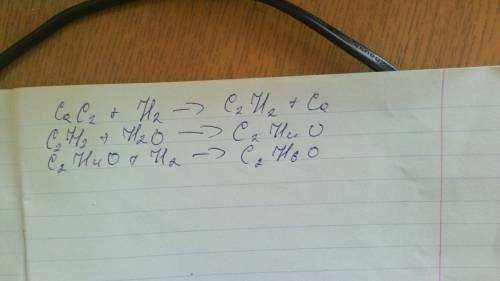 CaC2 + H2 → C2H2 + Ca
C2H2 + H2O → C2H4O
C2H4O + H2 → C2H6O